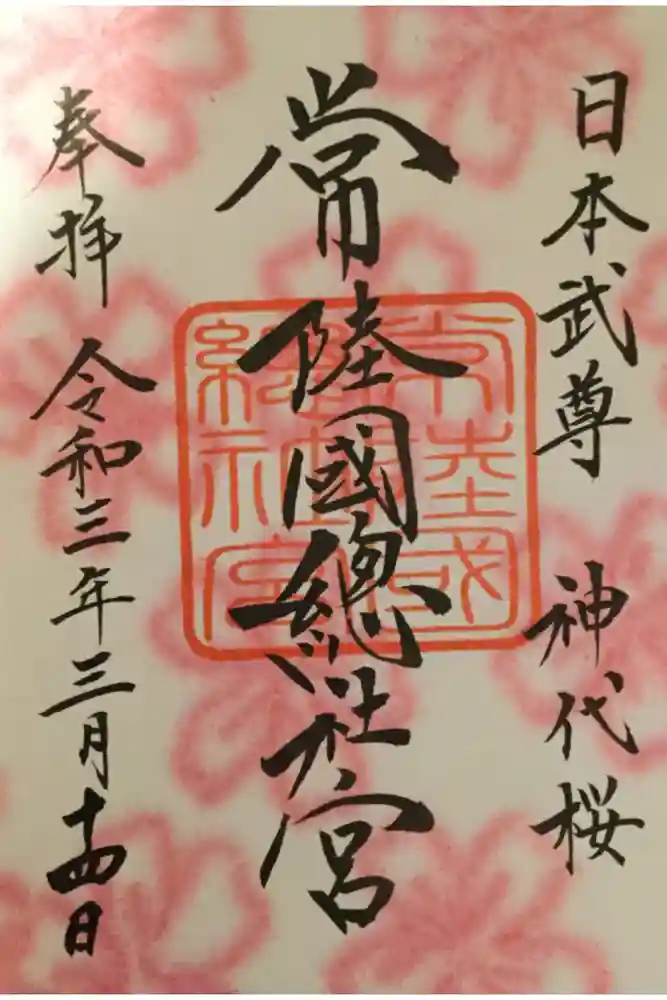 日本武尊 神代桜
常陸國總社宮
常陸國總社宮
奉拝 令和三年三月十四日